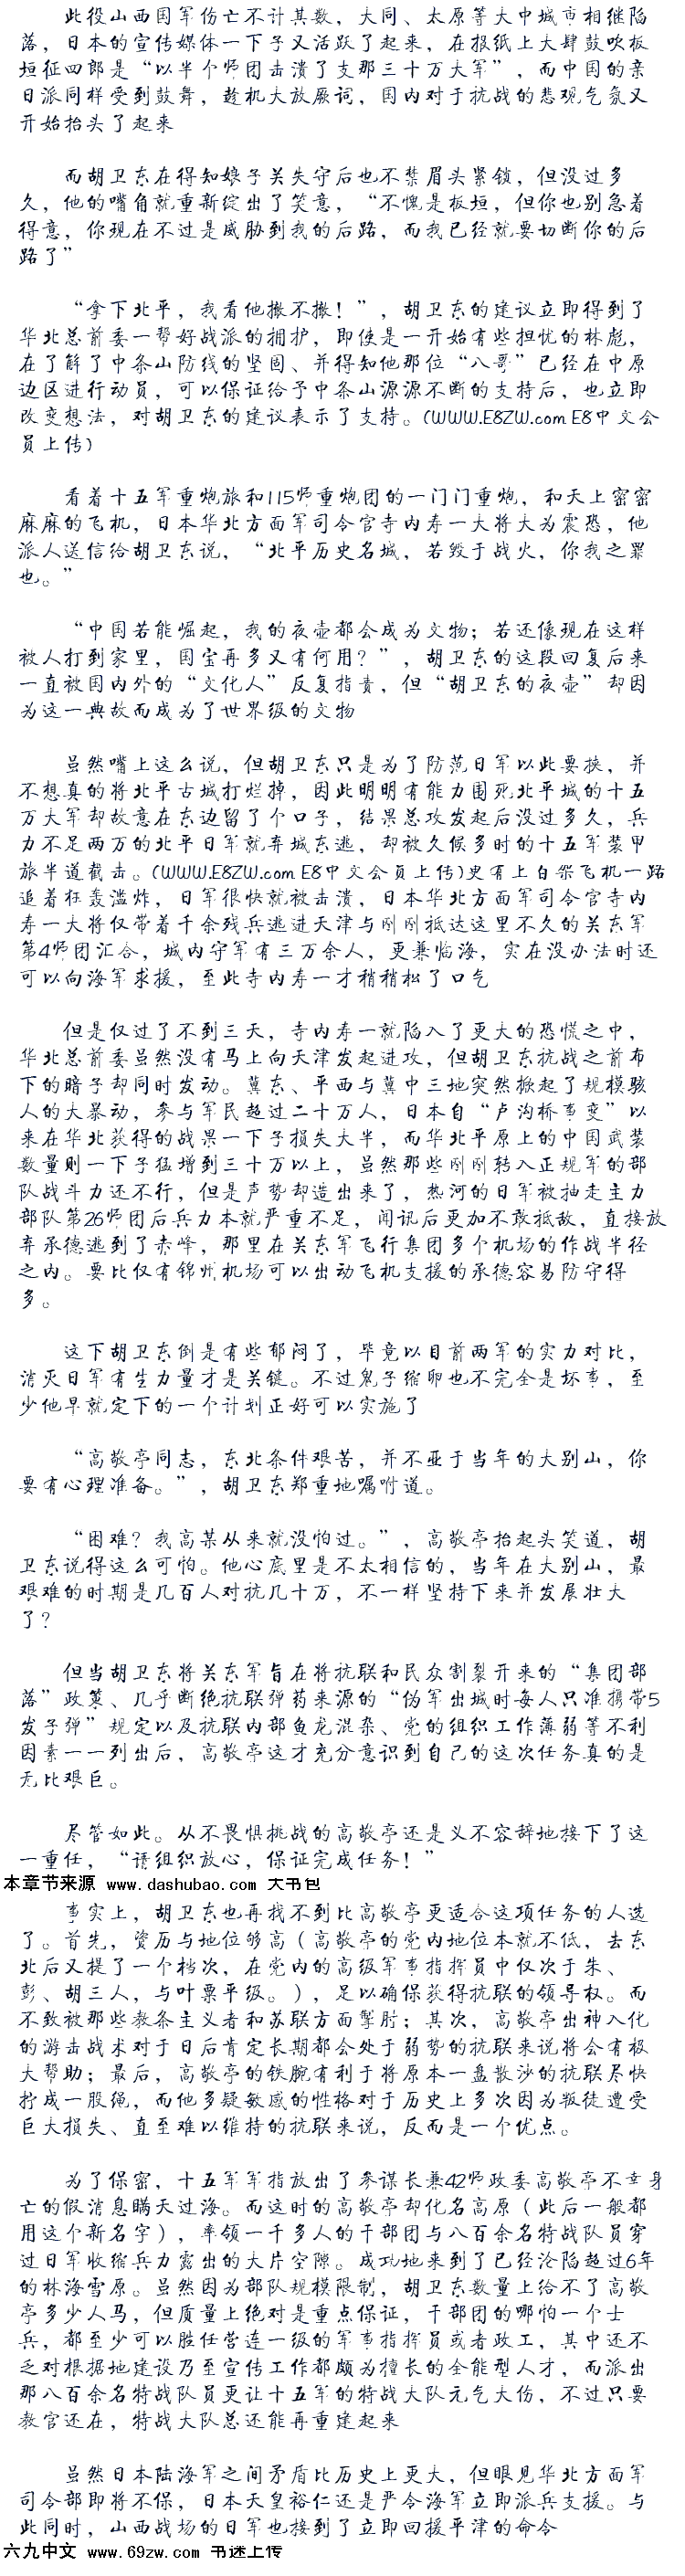 此役山西国军伤亡不计其数，大同、太原等大中城市相继陷
落，日本的宣传媒体一下子又活跃了起来，在报纸上大肆鼓吹板
垣征四郎是“以半个师团击溃了支那三十万大军”，而中国的亲
日派同样受到鼓舞，趁机大放厥词，国内对于抗战的悲观气氛又
开始抬头了起来
而胡卫东在得知娘子关失守后也不禁眉头紧锁，但没过多
久，他的嘴角就重新绽出了笑意，“不愧是板垣，但你也别急着
得意，你现在不过是威胁到我的后路，而我已经就要切断你的后
路了”
“拿下北平，我看他撤不撤！”，胡卫东的建议立即得到了
华北总前委一帮好战派的拥护，即使是一开始有些担忧的林彪，
在了解了中条山防线的坚固、并得知他那位“八哥”已经在中原
边区进行动员，可以保证给予中条山源源不断的支持后，也立即
改变想法，对胡卫东的建议表示了支持。(WWW.E8ZW.com E8中文会
员上传)
看着十五军重炮旅和115师重炮团的一门门重炮，和天上密密
麻麻的飞机，日本华北方面军司令官寺内寿一大将大为震恐，他
派人送信给胡卫东说，“北平历史名城，若毁于战火，你我之罪
也。”
“中国若能崛起，我的夜壶都会成为文物；若还像现在这样
被人打到家里，国宝再多又有何用？”，胡卫东的这段回复后来
一直被国内外的“文化人”反复指责，但“胡卫东的夜壶”却因
为这一典故而成为了世界级的文物
虽然嘴上这么说，但胡卫东只是为了防范日军以此要挟，并
不想真的将北平古城打烂掉，因此明明有能力围死北平城的十五
万大军却故意在东边留了个口子，结果总攻发起后没过多久，兵
力不足两万的北平日军就弃城东逃，却被久候多时的十五军装甲
旅半道截击。(WWW.E8ZW.com E8中文会员上传)更有上百架飞机一路
追着狂轰滥炸，日军很快就被击溃，日本华北方面军司令官寺内
寿一大将仅带着千余残兵逃进天津与刚刚抵达这里不久的关东军
第4师团汇合，城内守军有三万余人，更兼临海，实在没办法时还
可以向海军求援，至此寺内寿一才稍稍松了口气
但是仅过了不到三天，寺内寿一就陷入了更大的恐慌之中，
华北总前委虽然没有马上向天津发起进攻，但胡卫东抗战之前布
下的暗子却同时发动。冀东、平西与冀中三地突然掀起了规模骇
人的大暴动，参与军民超过二十万人，日本自“卢沟桥事变”以
来在华北获得的战果一下子损失大半，而华北平原上的中国武装
数量则一下子猛增到三十万以上，虽然那些刚刚转入正规军的部
队战斗力还不行，但是声势却造出来了，热河的日军被抽走主力
部队第26师团后兵力本就严重不足，闻讯后更加不敢抵敌，直接放
弃承德逃到了赤峰，那里在关东军飞行集团多个机场的作战半径
之内。要比仅有锦州机场可以出动飞机支援的承德容易防守得
多。
这下胡卫东倒是有些郁闷了，毕竟以目前两军的实力对比，
消灭日军有生力量才是关键。不过鬼子缩卵也不完全是坏事，至
少他早就定下的一个计划正好可以实施了
“高敬亭同志，东北条件艰苦，并不亚于当年的大别山，你
要有心理准备。”，胡卫东郑重地嘱咐道。
“困难？我高某从来就没怕过。”，高敬亭抬起头笑道，胡
卫东说得这么可怕。他心底里是不太相信的，当年在大别山，最
艰难的时期是几百人对抗几十万，不一样坚持下来并发展壮大
了？
但当胡卫东将关东军旨在将抗联和民众割裂开来的“集团部
落”政策、几乎断绝抗联弹药来源的“伪军出城时每人只准携带5
发子弹”规定以及抗联内部鱼龙混杂、党的组织工作薄弱等不利
因素一一列出后，高敬亭这才充分意识到自己的这次任务真的是
无比艰巨。
尽管如此。从不畏惧挑战的高敬亭还是义不容辞地接下了这
一重任，“请组织放心，保证完成任务！”
本章节来源 www.dashubao.com 大书包
事实上，胡卫东也再找不到比高敬亭更适合这项任务的人选
了。首先，资历与地位够高（高敬亭的党内地位本就不低，去东
北后又提了一个档次，在党内的高级军事指挥员中仅次于朱、
彭、胡三人，与叶票平级。），足以确保获得抗联的领导权。而
不致被那些教条主义者和苏联方面掣肘；其次，高敬亭出神入化
的游击战术对于日后肯定长期都会处于弱势的抗联来说将会有极
大帮助；最后，高敬亭的铁腕有利于将原本一盘散沙的抗联尽快
拧成一股绳，而他多疑敏感的性格对于历史上多次因为叛徒遭受
巨大损失、直至难以维持的抗联来说，反而是一个优点。
为了保密，十五军军指放出了参谋长兼42师政委高敬亭不幸身
亡的假消息瞒天过海。而这时的高敬亭却化名高原（此后一般都
用这个新名字），率领一千多人的干部团与八百余名特战队员穿
过日军收缩兵力露出的大片空隙。成功地来到了已经沦陷超过6年
的林海雪原。虽然因为部队规模限制，胡卫东数量上给不了高敬
亭多少人马，但质量上绝对是重点保证，干部团的哪怕一个士
兵，都至少可以胜任营连一级的军事指挥员或者政工，其中还不
乏对根据地建设乃至宣传工作都颇为擅长的全能型人才，而派出
那八百余名特战队员更让十五军的特战大队元气大伤，不过只要
教官还在，特战大队总还能再重建起来
虽然日本陆海军之间矛盾比历史上更大，但眼见华北方面军
司令部即将不保，日本天皇裕仁还是严令海军立即派兵支援。与
此同时，山西战场的日军也接到了立即回援平津的命令
六九中文 www.69zw.com 书迷上传